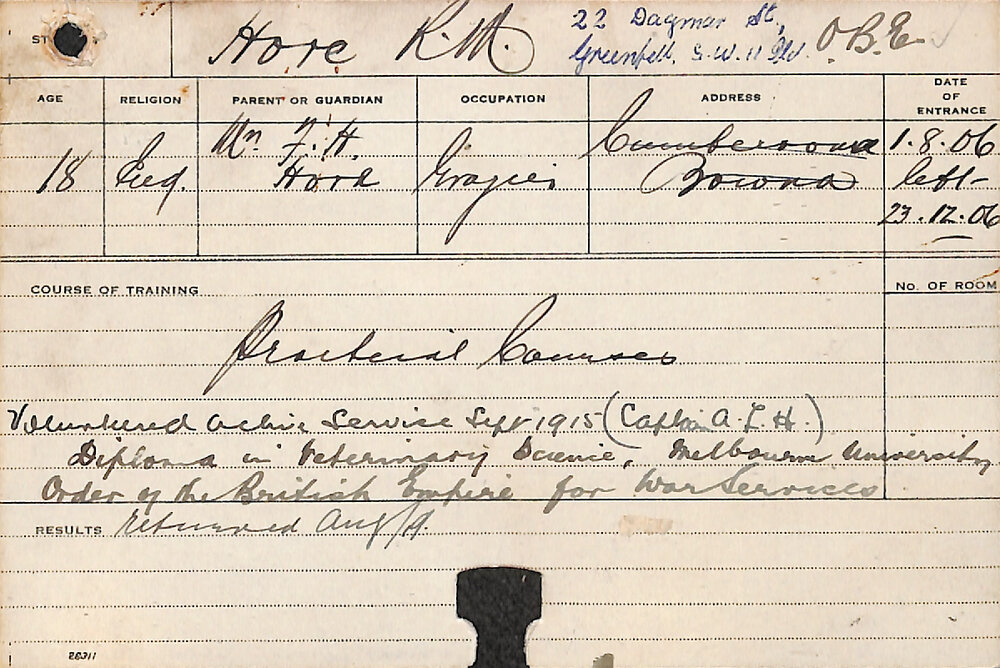 ST
Hore R.M. 22 Dagmar St, O.B.E
Greenfell. S.W.11
AGE RELIGION PARENT OR GUARDIAN OCCUPATION ADDRESS DATE OF ENTRANCE
18 Eng. Mr. F. H. Hore Grazier Cumberoona Bowna 1.8.06
left
23.12.06
COURSE OF TRAINING No. OF ROOM
Practical Courses
Volunteered Active Service Sept 1915 (Captain A.L.H.)
Diploma in Veterinary Science, Melbourne University
Order of the British Empire for War Services
RESULTS returned Aug/19.